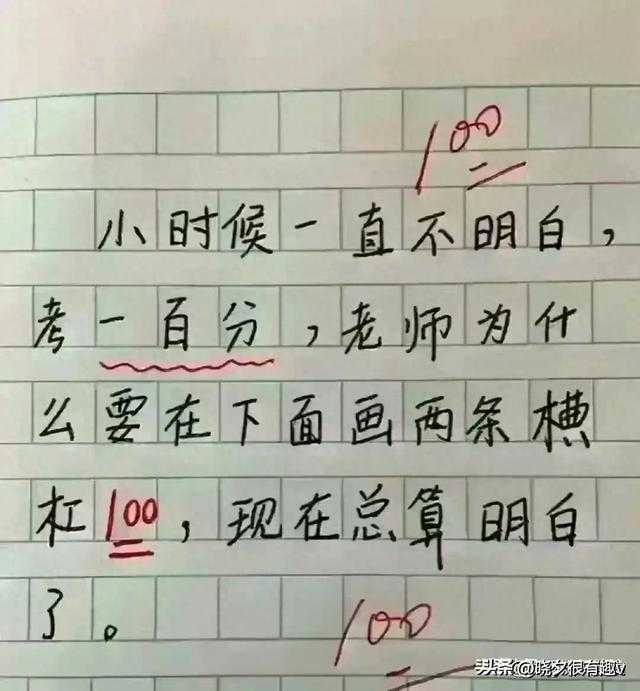 100
小时候一直不明白，
考一百分，老师为什
么要在下面画两条横
杠100，现在总算明白
了。
100
头条@晓文很有趣v